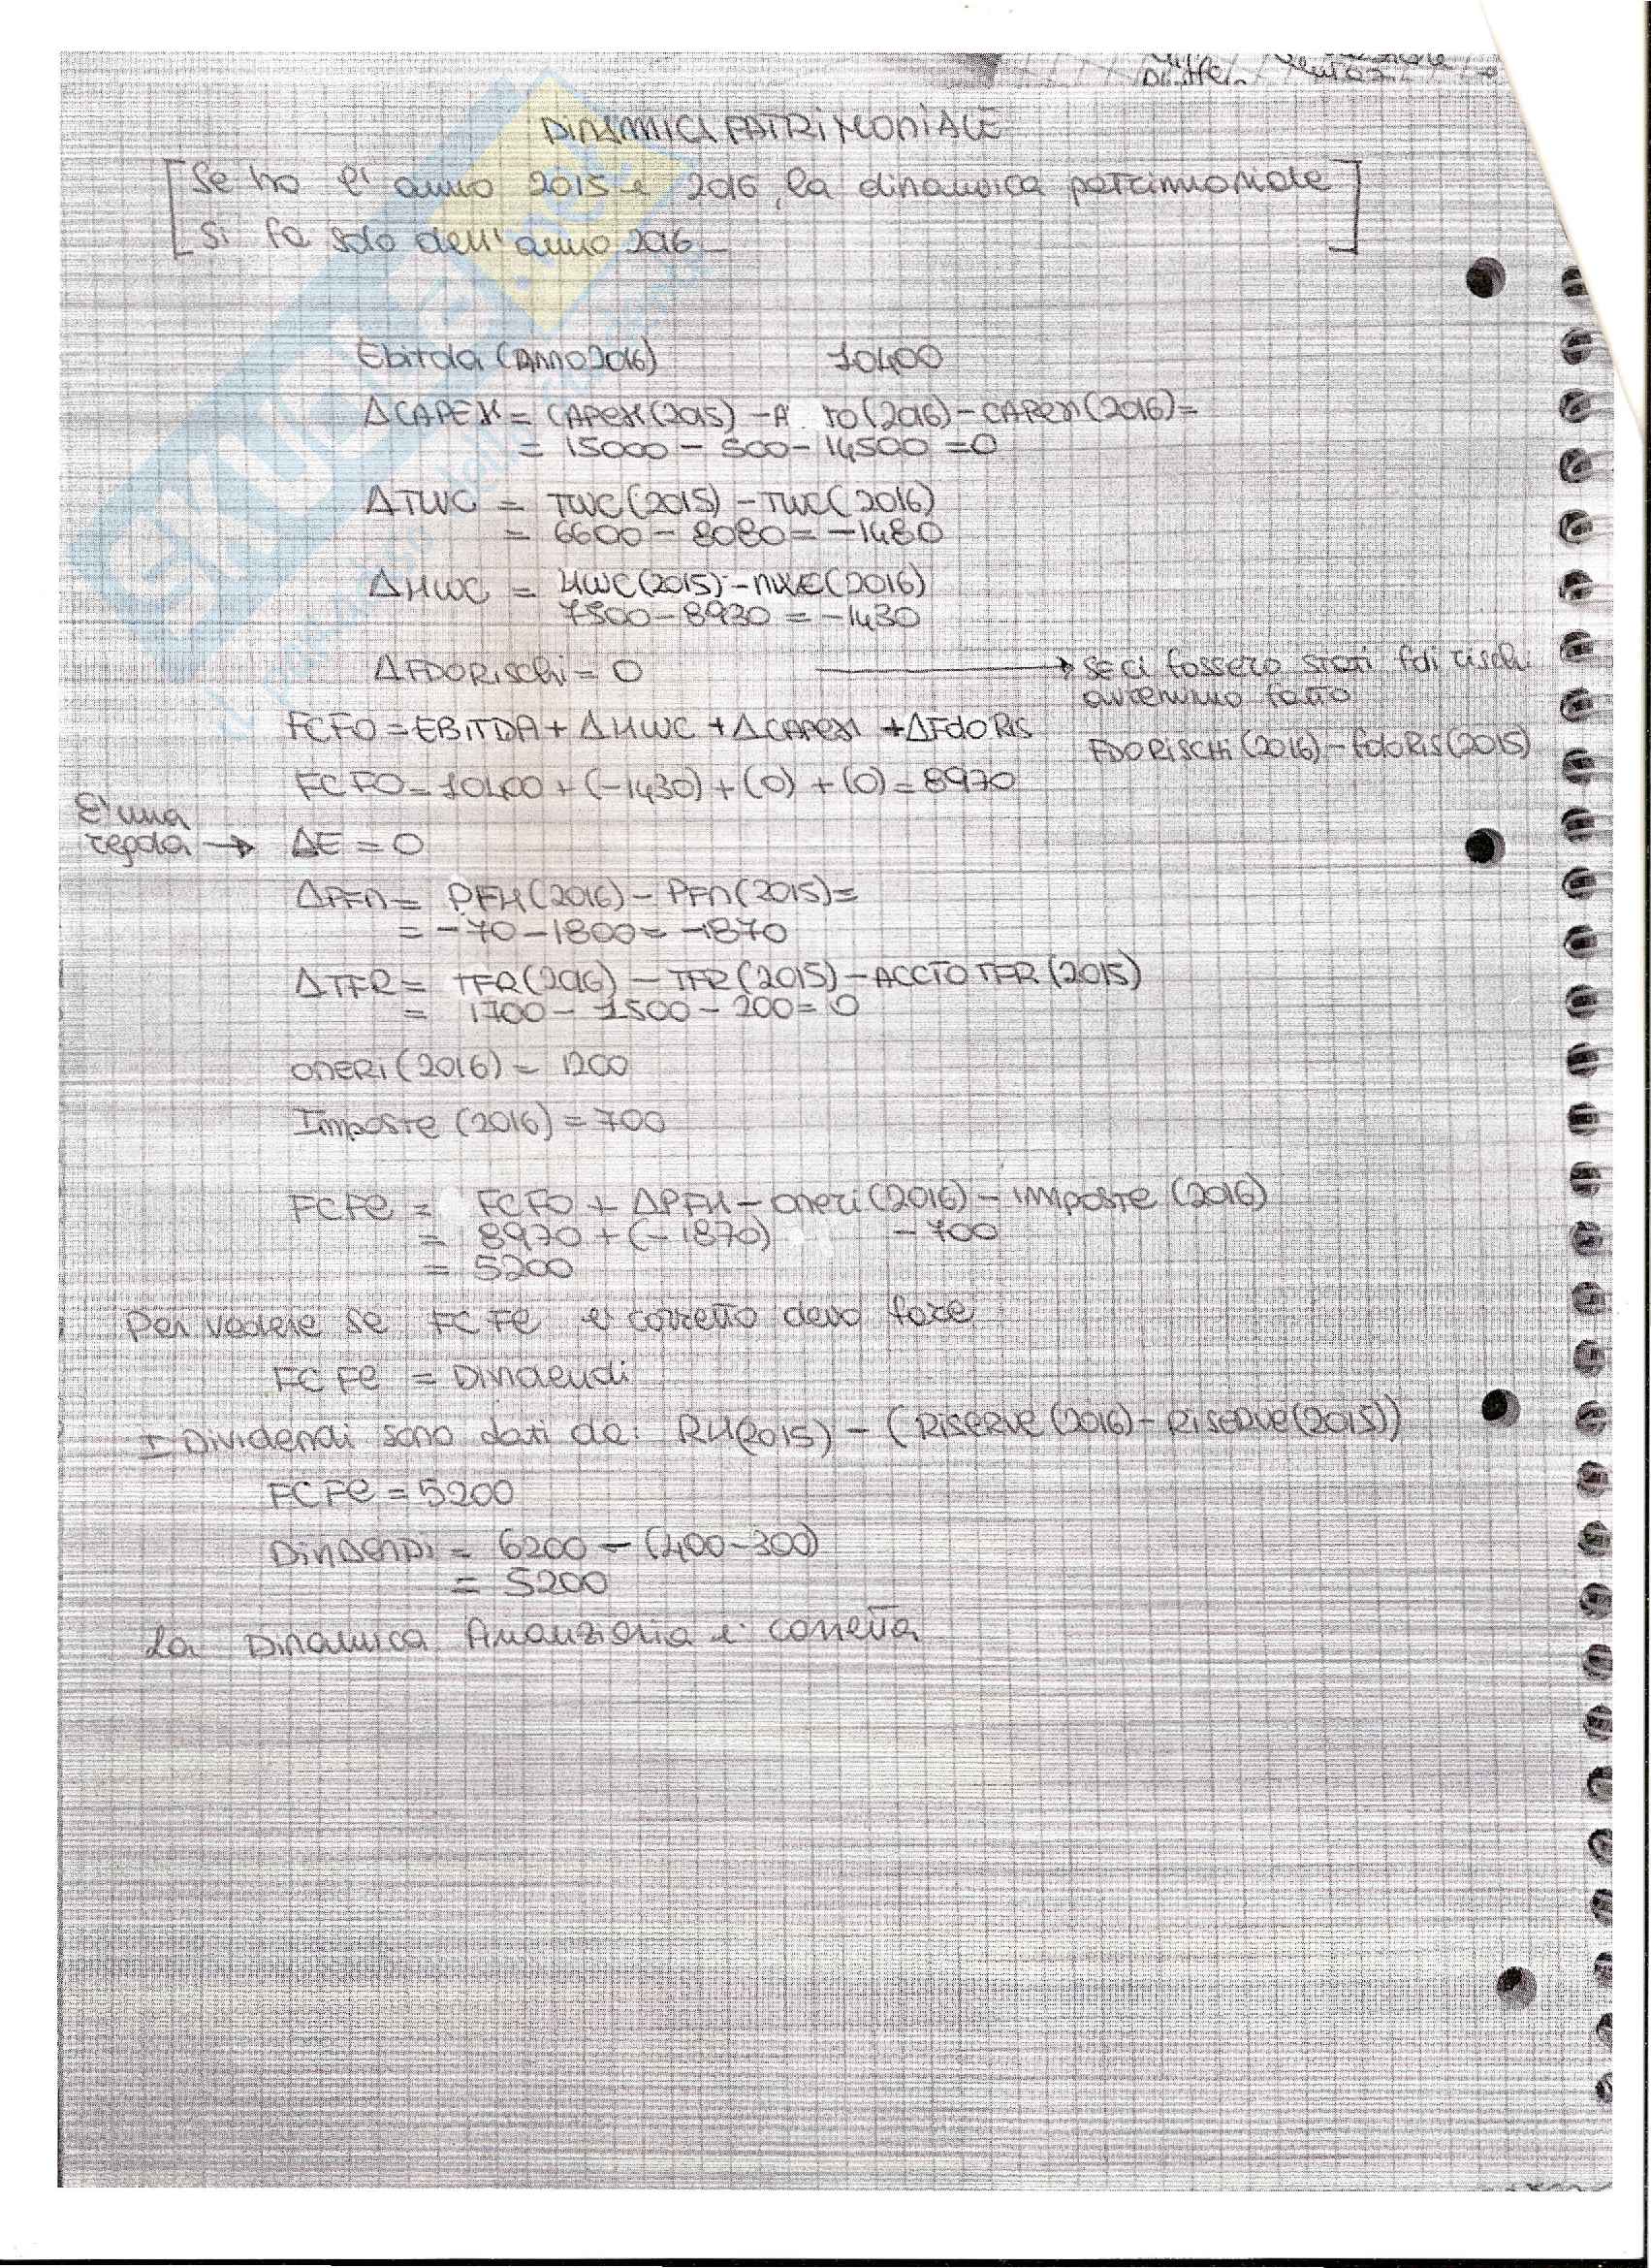 DINAMICA PATRIMONIALE
[Se ho l' anno 2015 e 2016, la dinamica patrimoniale
si fa solo dell' anno 2016]
Ebitda (Anno 2016) 10400
ΔCAPEX = CAPEX (2015) - A TO (2016) - CAPEX (2016) =
= 15000 - 500 - 14500 = 0
ΔTWC = TWC (2015) - TWC (2016)
= 6600 - 8080 = -1480
ΔNWC = NWC (2015) - NWC (2016)
7500 - 8930 = -1430
ΔFDO Rischi = 0 → se ci fossero stati fdi rischi
avremmo fatto
FCFO = EBITDA + ΔNWC + ΔCAPEX + ΔFdo RIS
FDO RISCHI (2016) - fdo Ris (2015)
FCFO = 10400 + (-1430) + (0) + (0) = 8970
E' una
regola → ΔE = 0
ΔPFN = PFN (2016) - PFN (2015) =
= -70 - 1800 = -1870
ΔTFR = TFR (2016) - TFR (2015) - ACCTO TFR (2015)
= 1700 - 1500 - 200 = 0
ONERI (2016) = 1200
Imposte (2016) = 700
FCFE = FCFO + ΔPFN - oneri (2016) - imposte (2016)
= 8970 + (-1870) - 700
= 5200
Per vedere se FCFE è corretto devo fare
FCFE = Dividendi
I Dividendi sono dati da: RN (2015) - (RISERVE (2016) - RISERVE (2015))
FCFE = 5200
DIVIDENDI = 6200 - (400 - 300)
= 5200
La Dinamica finanziaria è corretta